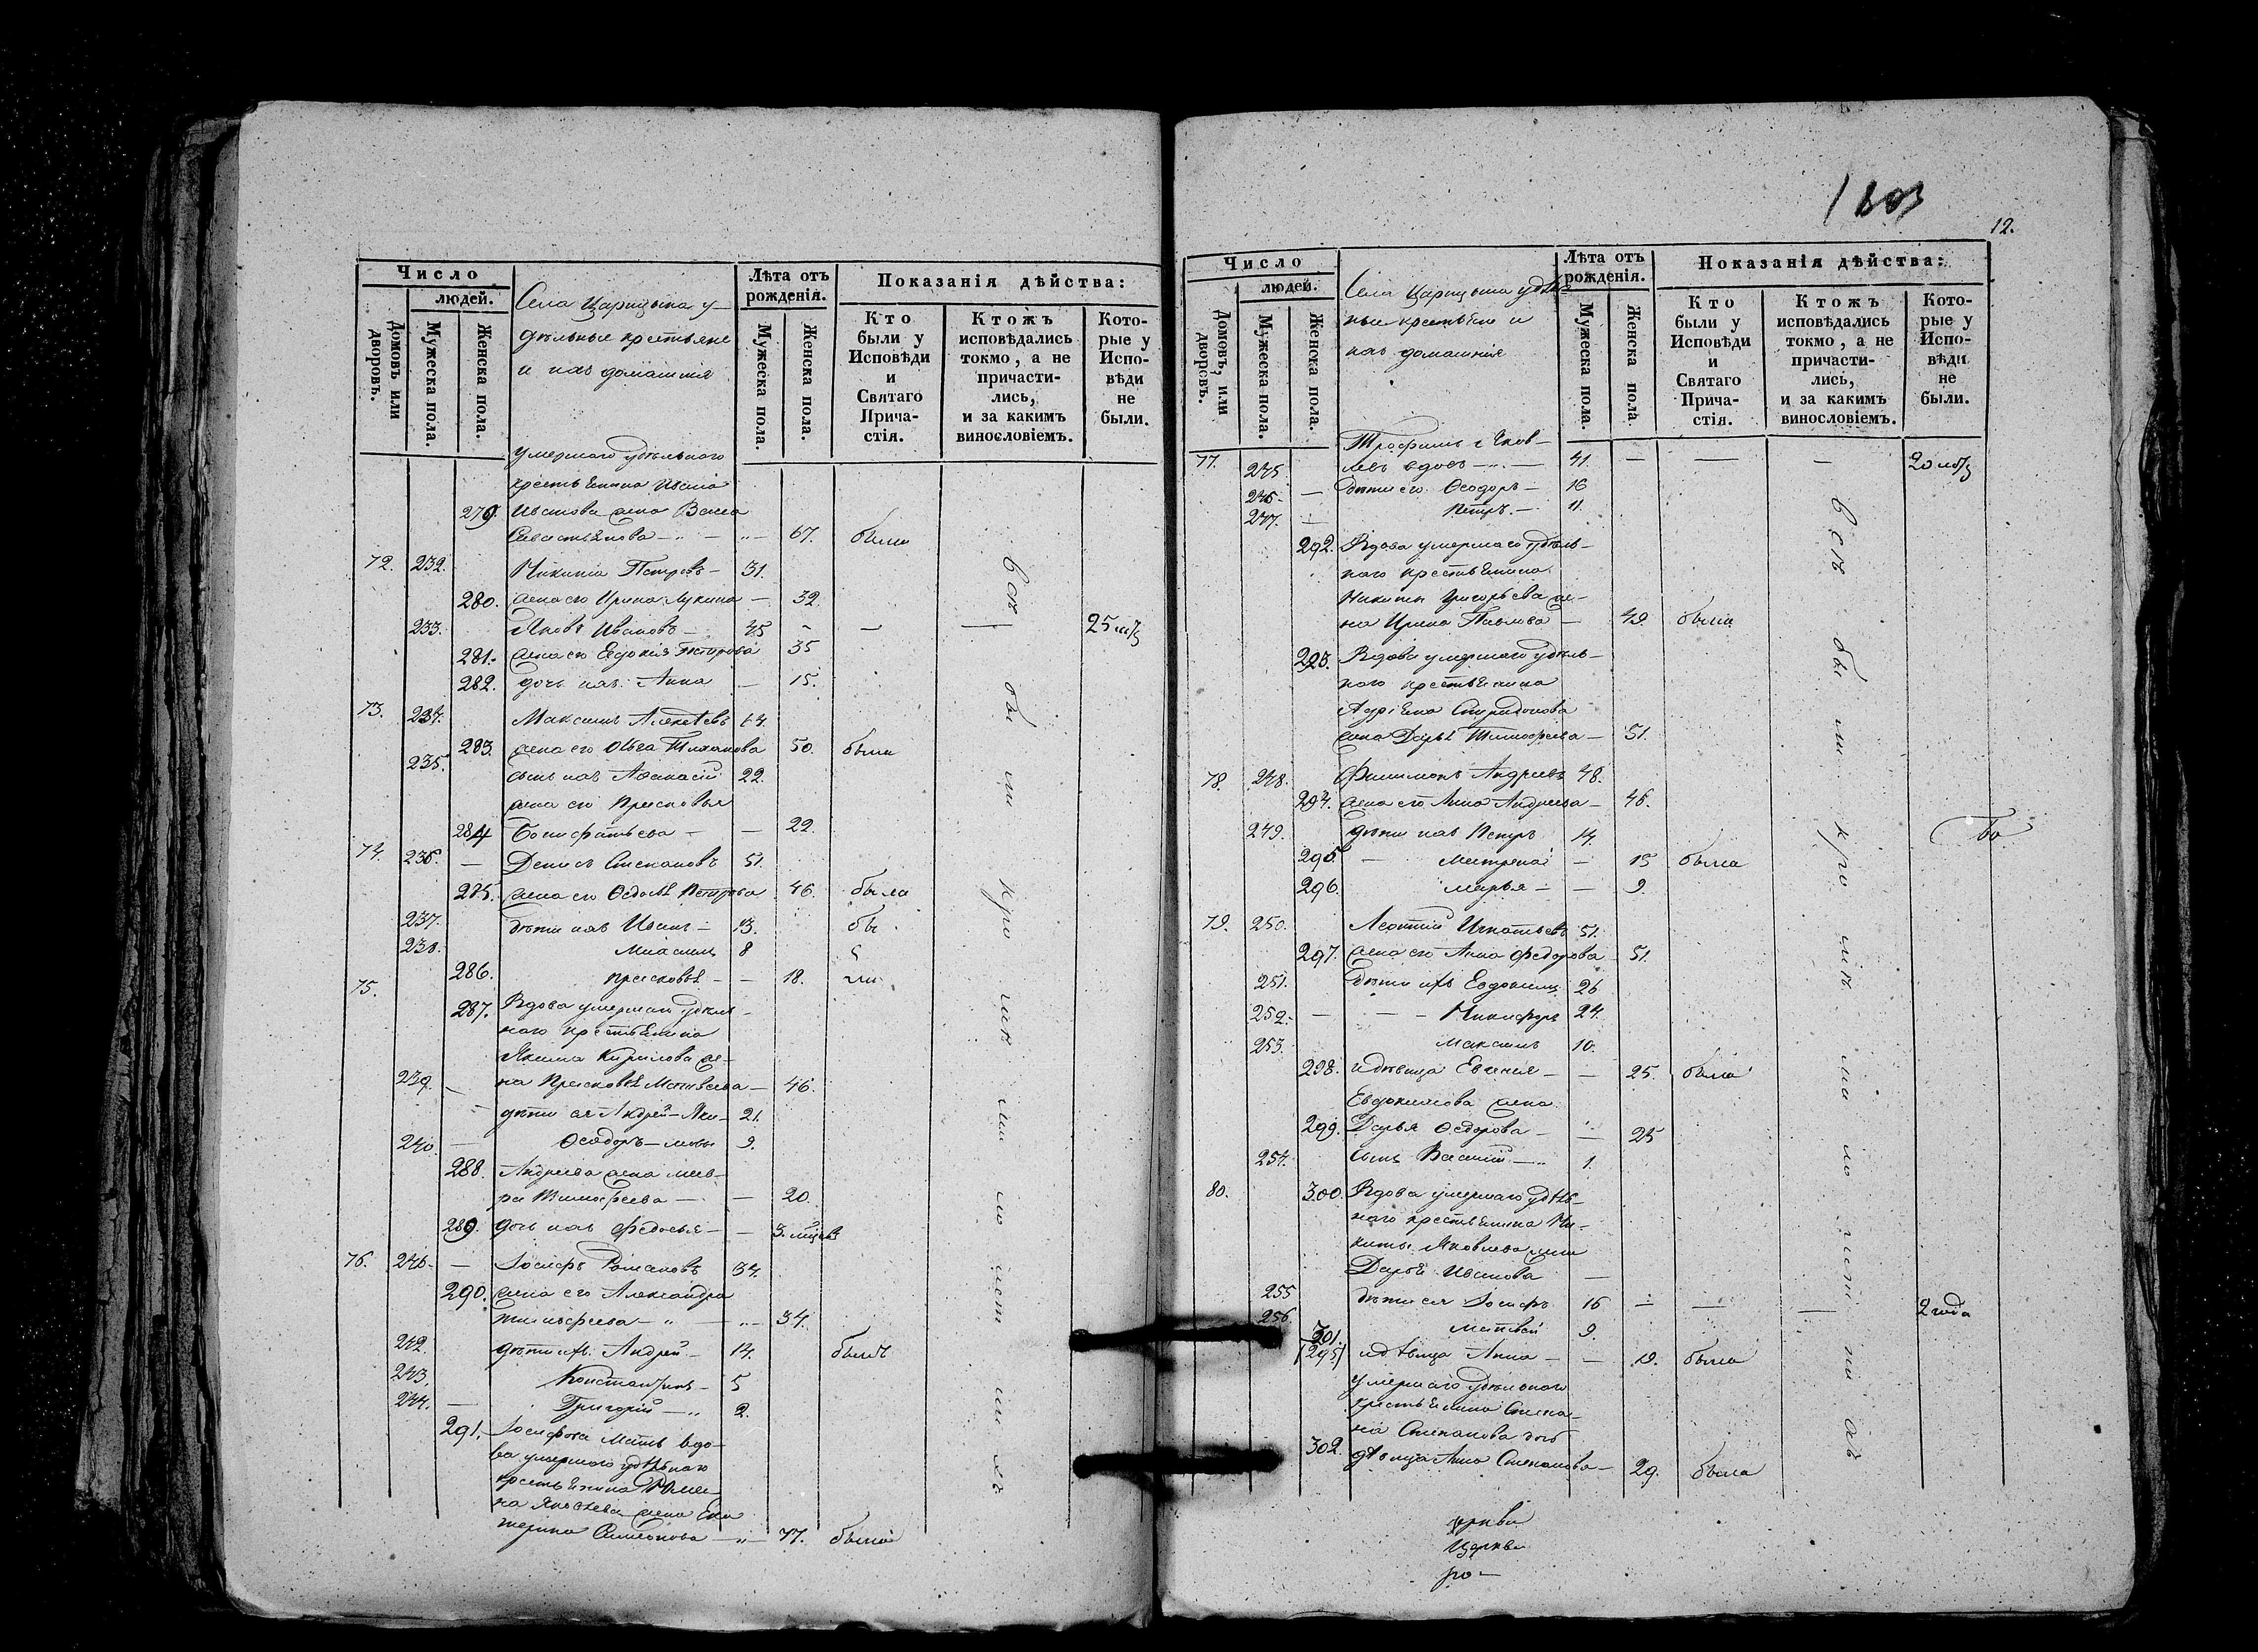 Число
людей.
Домовъ или дворовъ.
Мужеска пола.
Женска пола.
Села Царицына у-
дѣльные крестьяне
и ихъ домашнія
Лѣта отъ рожденія.
Мужеска пола.
Женска пола.
Показанія дѣйства:
Кто были у Исповѣди и Святаго Прича-стія.
Ктожъ исповѣдались токмо, а не причасти-лись, и за какимъ винословіемъ.
Кото-рые у Испо-вѣди не были.
умершаго удѣльнаго
крестьянина Ивана
279. Иванова жена Васса
Севастьянова 67. была
72. 232. Никита Петровъ 31.
280. жена его Ирина Лукина 32.
233. Яковъ Ивановъ 45 — — — 25
281. жена его Евдокія Петрова 35
282. дочь ихъ Анна — 15.
73. 234. Максимъ Алексѣевъ 64.
283. жена его Ольга 50. была
235. сынъ ихъ Афанасій 22.
жена его Прасковья
284 Бонифатьева — — 22.
74. 236. — Денисъ Степановъ 51.
285. жена его Ѳедосья Петрова 46. была
237. дѣти ихъ Иванъ — 13. бы
238. 8
286. Прасковья — — 18. ли
75. 287. Вдова умершаго удѣль-
наго крестьянина
Якима Кирилова же-
239. — на Прасковья Матвеева — 46.
дѣти ея Андрей — Яки- 21.
240. — Ѳеодоръ — мовы 9.
288. Андреева жена Мав-
ра Тимофеева — — 20.
289. дочь ихъ Федосья — — 3.
76. 241. — Іосифъ Романовъ 34.
290. жена его Александра
Тимофеева — 34.
242. дѣти ихъ Андрей — 14. былъ
243. Константинъ — 5
244. — Григорій — 2.
291. Іосифова мать вдо-
ва умершаго удѣльнаго
крестьянина Рома-
на жена Ека
терина Симеонова — 77. была
всѣ бы ли кро
1803
12.
Число
людей.
Домовъ, или дворовъ.
Мужеска пола.
Женска пола.
Села Царицына удѣль
ные крестьяне и
ихъ домашнія
Лѣта отъ рожденія.
Мужеска пола.
Женска пола
Показанія дѣйства:
Кто были у Исповѣди и Святаго Прича-стія.
Ктожъ исповѣдались токмо, а не причасти-лись, и за какимъ винословіемъ.
Кото-рые у Испо-вѣди не были.
Трофимъ Яков-
77. 245. левъ вдовъ — 41. — — — 20
246. — дѣти его Ѳеодоръ — 16
247. — Петръ. — 11.
292. Вдова умершаго удѣль-
наго крестьянина
Никиты Григорьева же-
на Ирина Павлова — 49. была
293. Вдова умершаго удѣль-
наго крестьянина
Адріана Спиридонова
жена Дарья Тимофеева — 51.
78. 248. Филимонъ Андреевъ 48.
294. жена его Анна Андреева — 46.
249. дѣти ихъ Петръ 14.
295. — Матрена — 15 была
296. Марья — — 9.
79. 250. Леонтій Игнатьевъ 51.
297. жена его Анна Федорова 51.
251. дѣти ихъ Евдокимъ 26
252. — — — Никифоръ 24.
253. Максимъ 10.
298. и дѣвица Евгенія — — 25. была
Евдокимова жена
299. Дарья Ѳедорова — — 25
254. сынъ Василій — 1.
80. 300. Вдова умершаго удѣль-
наго крестьянина Ни-
киты Яковлева жена
Дарья Иванова —
255 дѣти ея Іосифъ 16 — — — 2 года
256. Матвей 9.
301. (295) и дѣвица Анна — — 19. была
умершаго удѣльнаго
крестьянина Степа-
на Степанова дочь
302. дѣвица Анна Степанова — 29. была
всѣ бы ли кро
церкви
Церкви
ро —